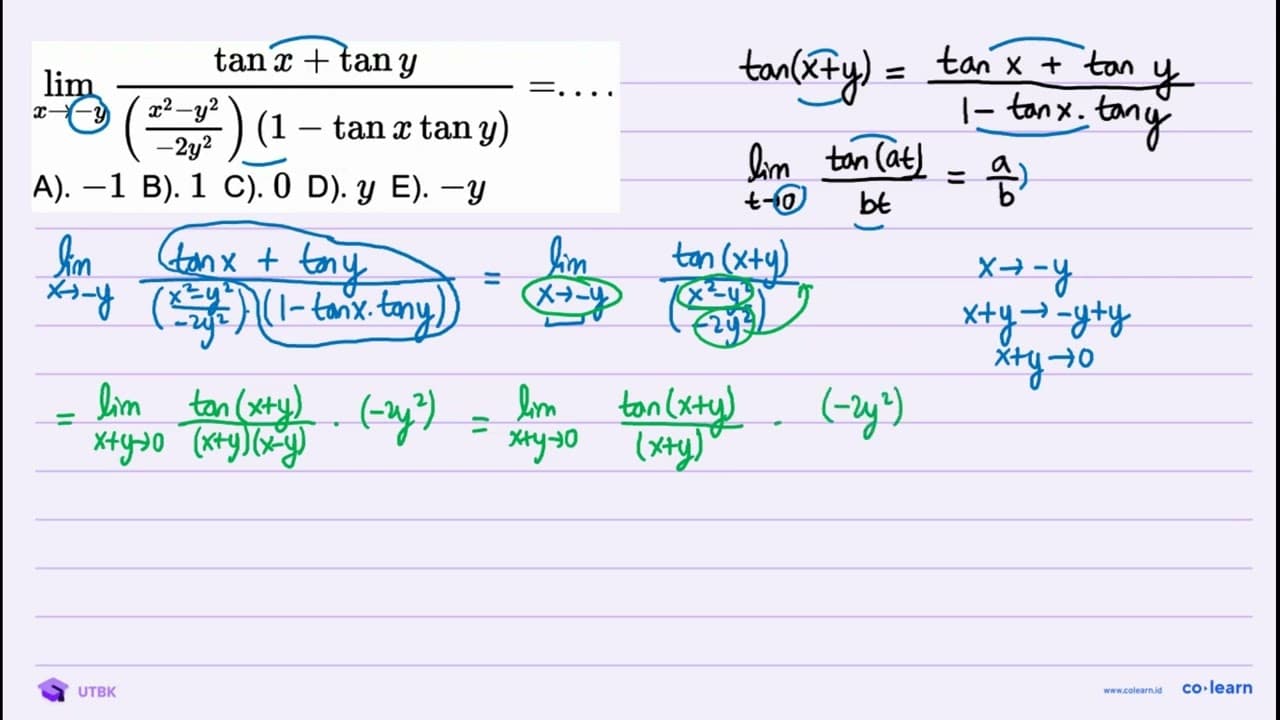 lim x→−y (tan x + tan y) / ((x² − y²)/(−2y²)) (1 − tan x tan y) = ....
A). −1 B). 1 C). 0 D). y E). −y
tan(x+y) = (tan x + tan y) / (1 − tan x . tan y)
lim t→0 tan(at) / bt = a/b
lim x→−y (tan x + tan y) / ((x²−y²)/(−2y²)) . (1 − tan x . tan y) = lim x→−y tan(x+y) / ((x²−y²)/(−2y²))
x → −y
x+y → −y+y
x+y → 0
= lim x+y→0 tan(x+y) / (x+y)(x−y) . (−2y²) = lim x+y→0 tan(x+y) / (x+y) . (−2y²)
UTBK
www.colearn.id
co·learn